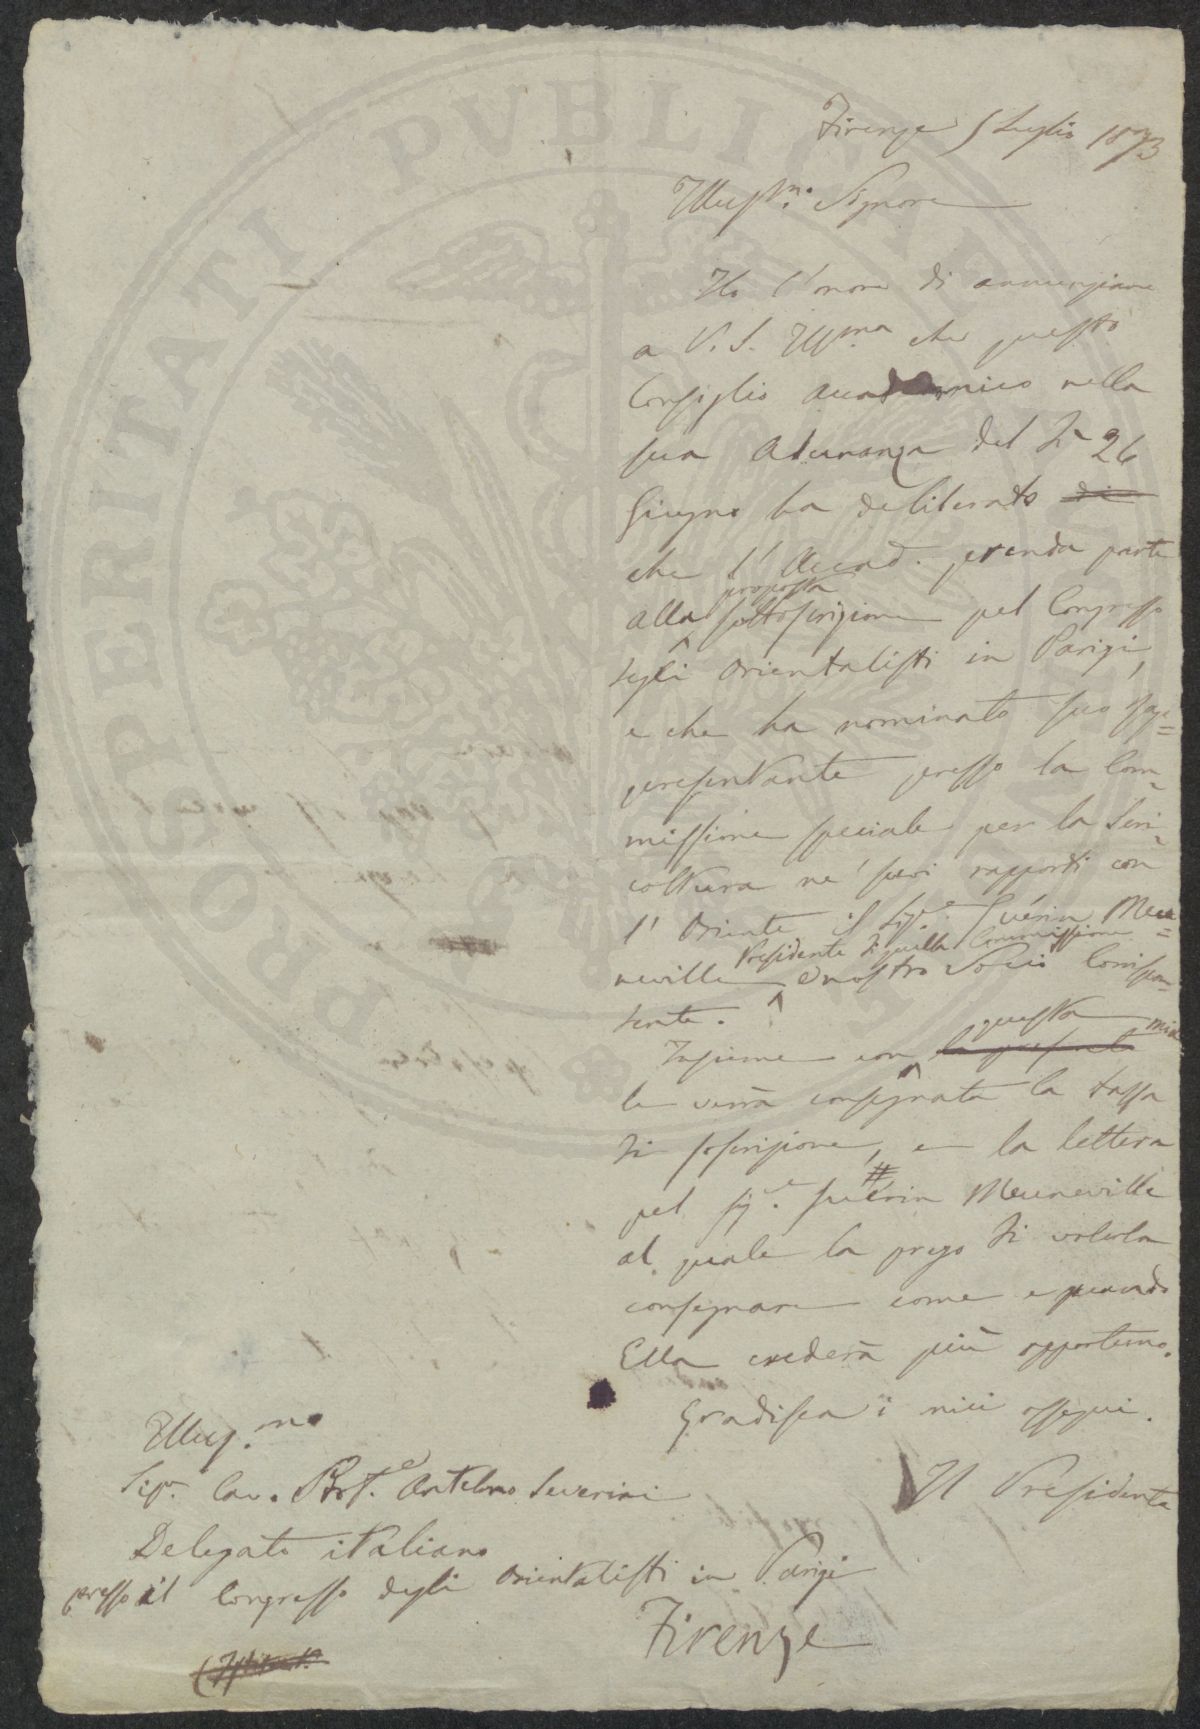 Firenze 5 Luglio 1873
Illust.mo Signore
Ho l'onore di annunziare
a V. S. Ill.ma che questo
Consiglio accademico nella
sua Adunanza del dì 26
Giugno ha deliberato di
che l'Accad. prenda parte
alla proposta sottoscrizione pel Congresso
degli Orientalisti in Parigi,
e che ha nominato suo rap=
presentante presso la Com=
missione speciale per la Seri=
coltura ne' suoi rapporti con
l'Oriente il Sig.e Guérin Meu=
neville Presidente di quella Commissione e nostro Socio Corrispon=
dente.
Insieme con la presente questa mia
le verrà consegnata la tassa
di soscrizione, e la lettera
pel sig.e Guérin Meuneville
al quale la prego di volerla
consegnare come e quando
Ella crederà più opportuno.
Gradisca i miei ossequi.
Il Presidente
Illus.mo
Sig.r Cav. Prof.e Antelmo Severini
Delegato italiano
presso il Congresso degli Orientalisti in Parigi
Firenze
PROSPERITATI PVBLICAE